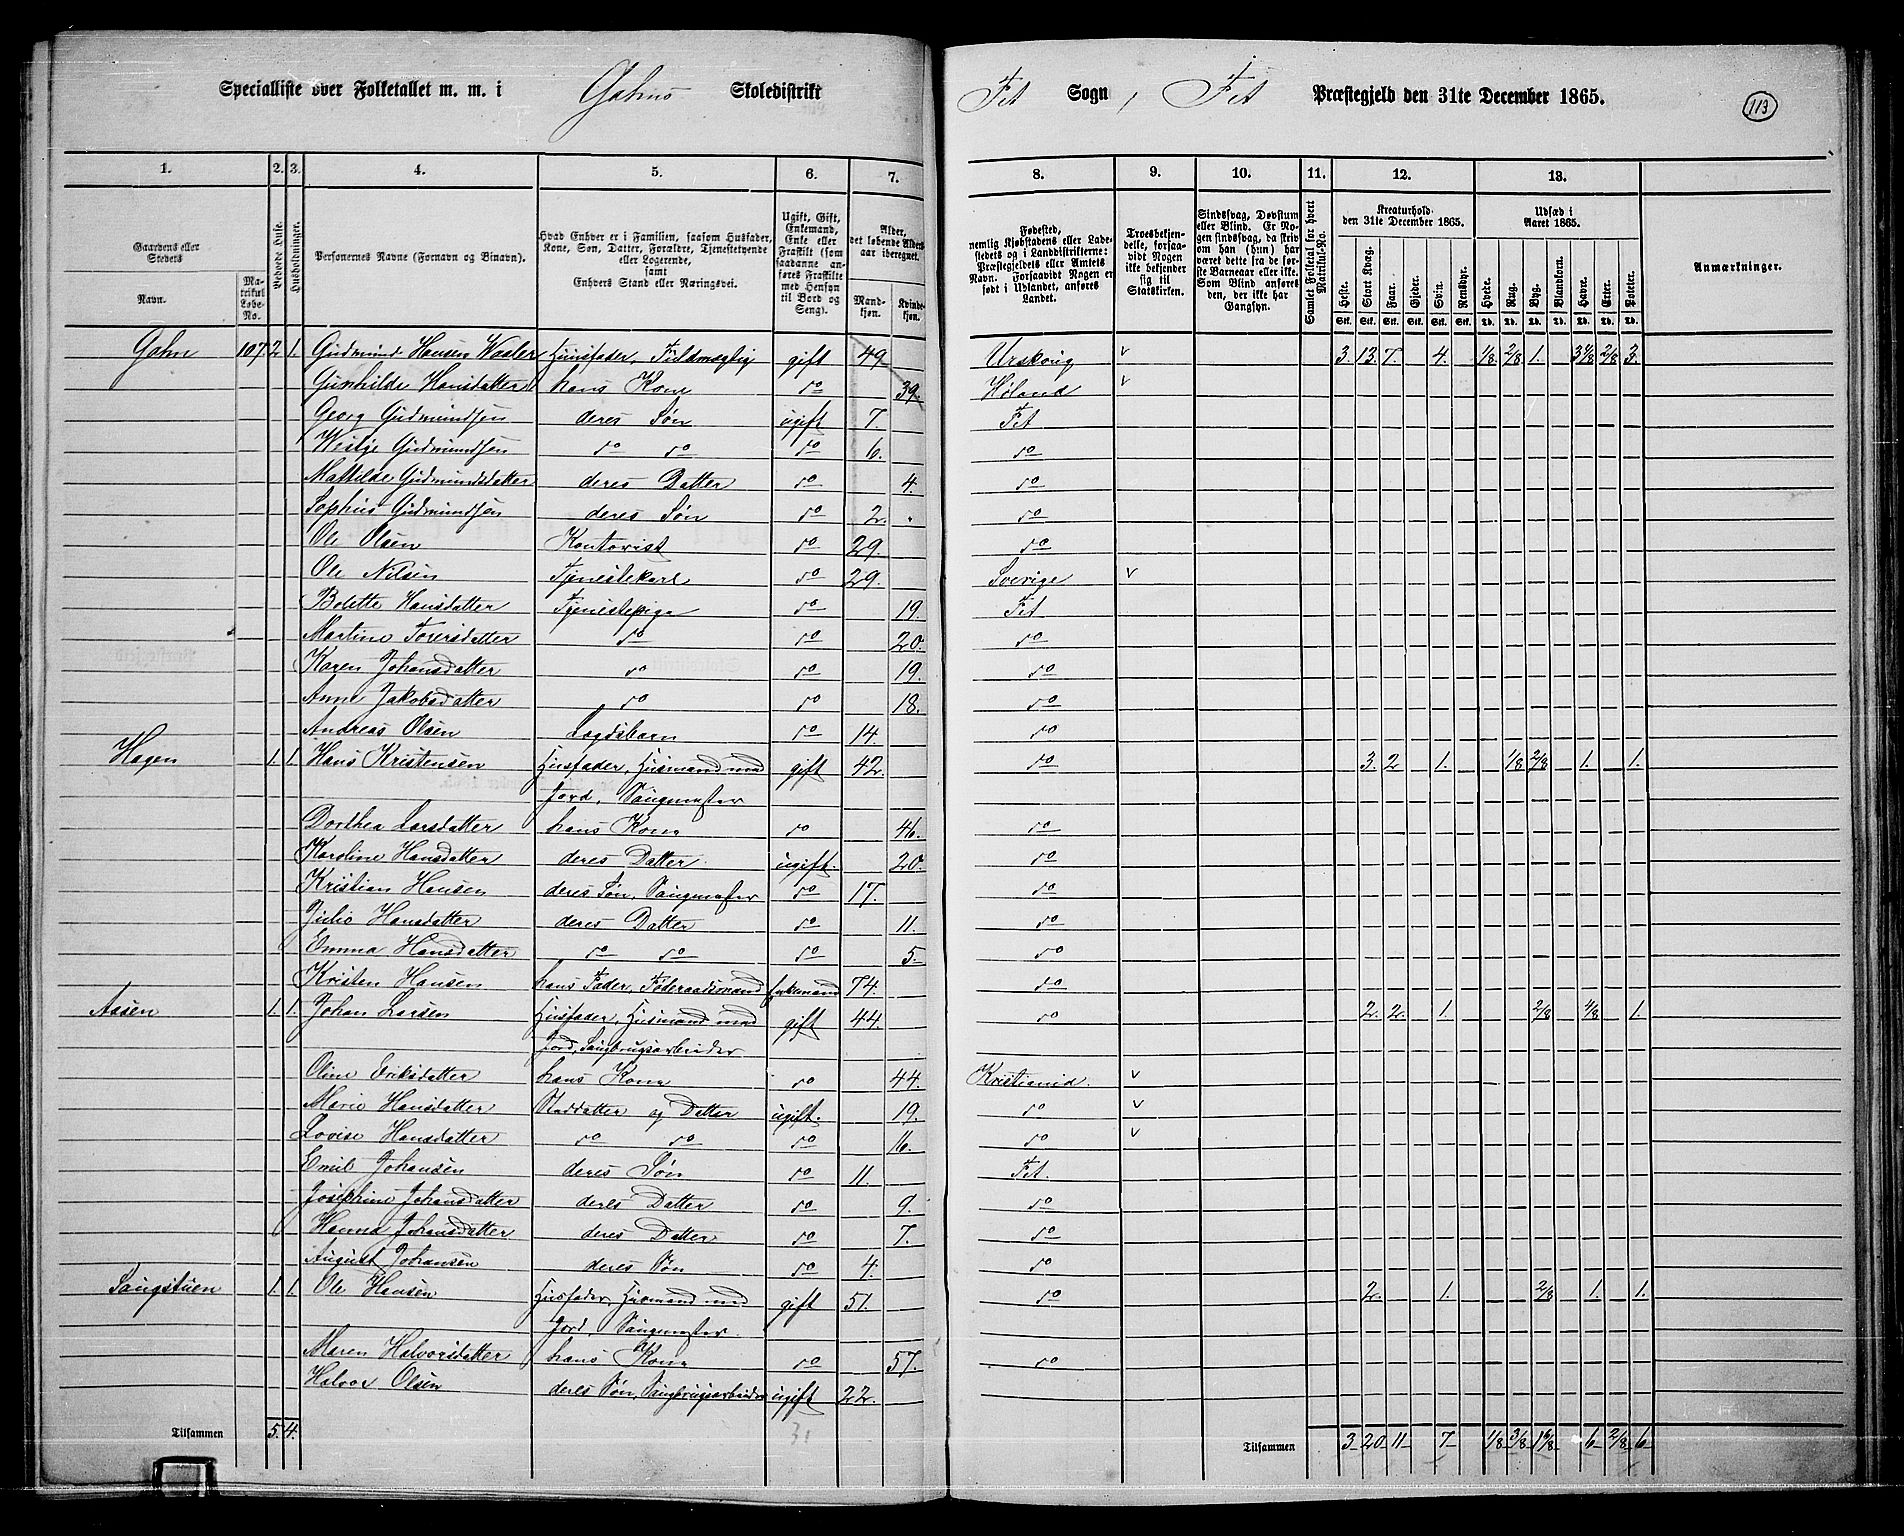 Specialliste over Folketallet m. m. i Gahns Skoledistrikt Fet Sogn, Fet Præstegjeld den 31te December 1865. 113
1. 2. 3. 4. 5. 6. 7. 8. 9. 10. 11. 12. 13.
Gaardens eller Stedets Navn. Matrikul Løbe-No. Beboede Huse. Husholdninger. Personernes Navne (Fornavn og Binavn). Hvad Enhver er i Familien, saasom Husfader, Kone, Søn, Datter, Forældre, Tjenestetyende eller Logerende, samt Enhvers Stand eller Næringsvei. Ugift, Gift, Enkemand, Enke eller Fraskilt (som saadanne anføres Fraskilte med Hensyn til Bord og Seng). Alder, det løbende Alders aar iberegnet. Mandkjøn. Kvindekjøn.
Fødested, nemlig Kjøbstadens eller Ladestedets og i Landdistrikterne: Præstegjeldets eller Amtets Navn. Forsaavidt Nogen er født i Udlandet, anføres Landet. Troesbekjendelse, forsaavidt Nogen ikke bekjender sig til Statskirken. Sindssvag, Døvstum eller Blind. Er Nogen sindssvag, da skrives om han (hun) har været dette fra de første Barneaar eller ikke. Som Blind anføres den, der ikke har Gangsyn. Samlet Folketal for hvert Matrikul-No. Kreaturhold den 31te December 1865. Udsæd i Aaret 1865. Anmærkninger.
Heste. Stort Kvæg. Faar. Gjeder. Svin. Rensdyr. Hvede. Rug. Byg. Blandkorn. Havre. Erter. Poteter.
Stk. Stk. Stk. Stk. Stk. Stk. Td. Td. Td. Td. Td. Td. Td.
Gahn 107 2 1. Gudmund Hansen Waaler Huusfader, Fuldmægtig gift 49 Urskoug v 3. 13. 7. 4. 1/8 2/8 1. 3 4/8 2/8 3.
Gunhilde Hansdatter hans Kone do 39. Høland v
Georg Gudmundsen deres Søn ugift 7. Fet
Gudmundsen do do do 6. do
Mathilde Gudmundsdatter deres Datter do 4. do
Sophus Gudmundsen deres Søn do 2. do
Ole Olsen Kontorist do 29. do
Ole Nilsen Tjenestekarl do 29. Sverige v
Bolette Hansdatter Tjenestepige do 19. Fet
Martine Torersdatter do do 20. do
Karen Johansdatter do do 19. do
Anne Jakobsdatter do do 18. do
Andreas Olsen Lægdsbarn do 14. do
Hagen 1. 1. Hans Kristensen Husfader, Husmand med gift 42. do 3. 2. 1. 1/8 2/8 1. 1.
Jord, Saugmester
Dorthea Larsdatter hans Kone do 46. do
Karoline Hansdatter deres Datter ugift. 20. do
Kristian Hansen deres Søn, Saugmester do 17. do
Julie Hansdatter deres Datter do 11. do
Emma Hansdatter do do do 5. do
Kristen Hansen hans Fader, Føderaadsmand Enkemand 74. do
Aasen 1. 1. Johan Larsen Husfader, Husmand med gift 44. do 2. 2. 1. 2/8 4/8 1.
Jord, Saugbrugsarbeider
Oline Eriksdatter hans Kone do 44. Kristiania. v
Marie Hansdatter Steddatter og Datter ugift. 19. do v
Lovise Hansdatter do do do 16. do v
Emil Johansen deres Søn do 11. Fet.
Josephine Johansdatter deres Datter do 9. do
Hanna Johansdatter deres Datter do 7. do
August Johansen deres Søn do 4. do
Saugstuen 1. 1. Ole Hansen Husfader, Husmand med gift 51. do 2. 1. 2/8 1. 1.
Jord, Saugmester.
Maren Halvorsdatter hans Kone do 57. do
Halvor Olsen deres Søn, Saugbrugsarbeider ugift 22.
Tilsammen 5. 4. 31 Tilsammen 3 20 11 7 1/8 3/8 1 6/8 6 2/8 6